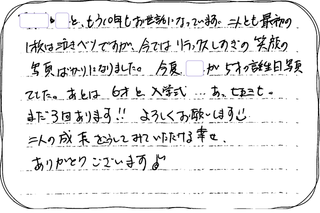 と と、もう10年もお世話になっています。二人とも最初の
1枚は泣きべそですが、今ではリラックスしすぎの笑顔の
写真ばかりになりました。今夏 が5才の誕生日写真
でした。あとは 6才と 入学式…あ、七五三も。
まだ3回あります!! よろしくお願いします
二人の成長をこうしてみていただける幸せ、
ありがとうございます♪